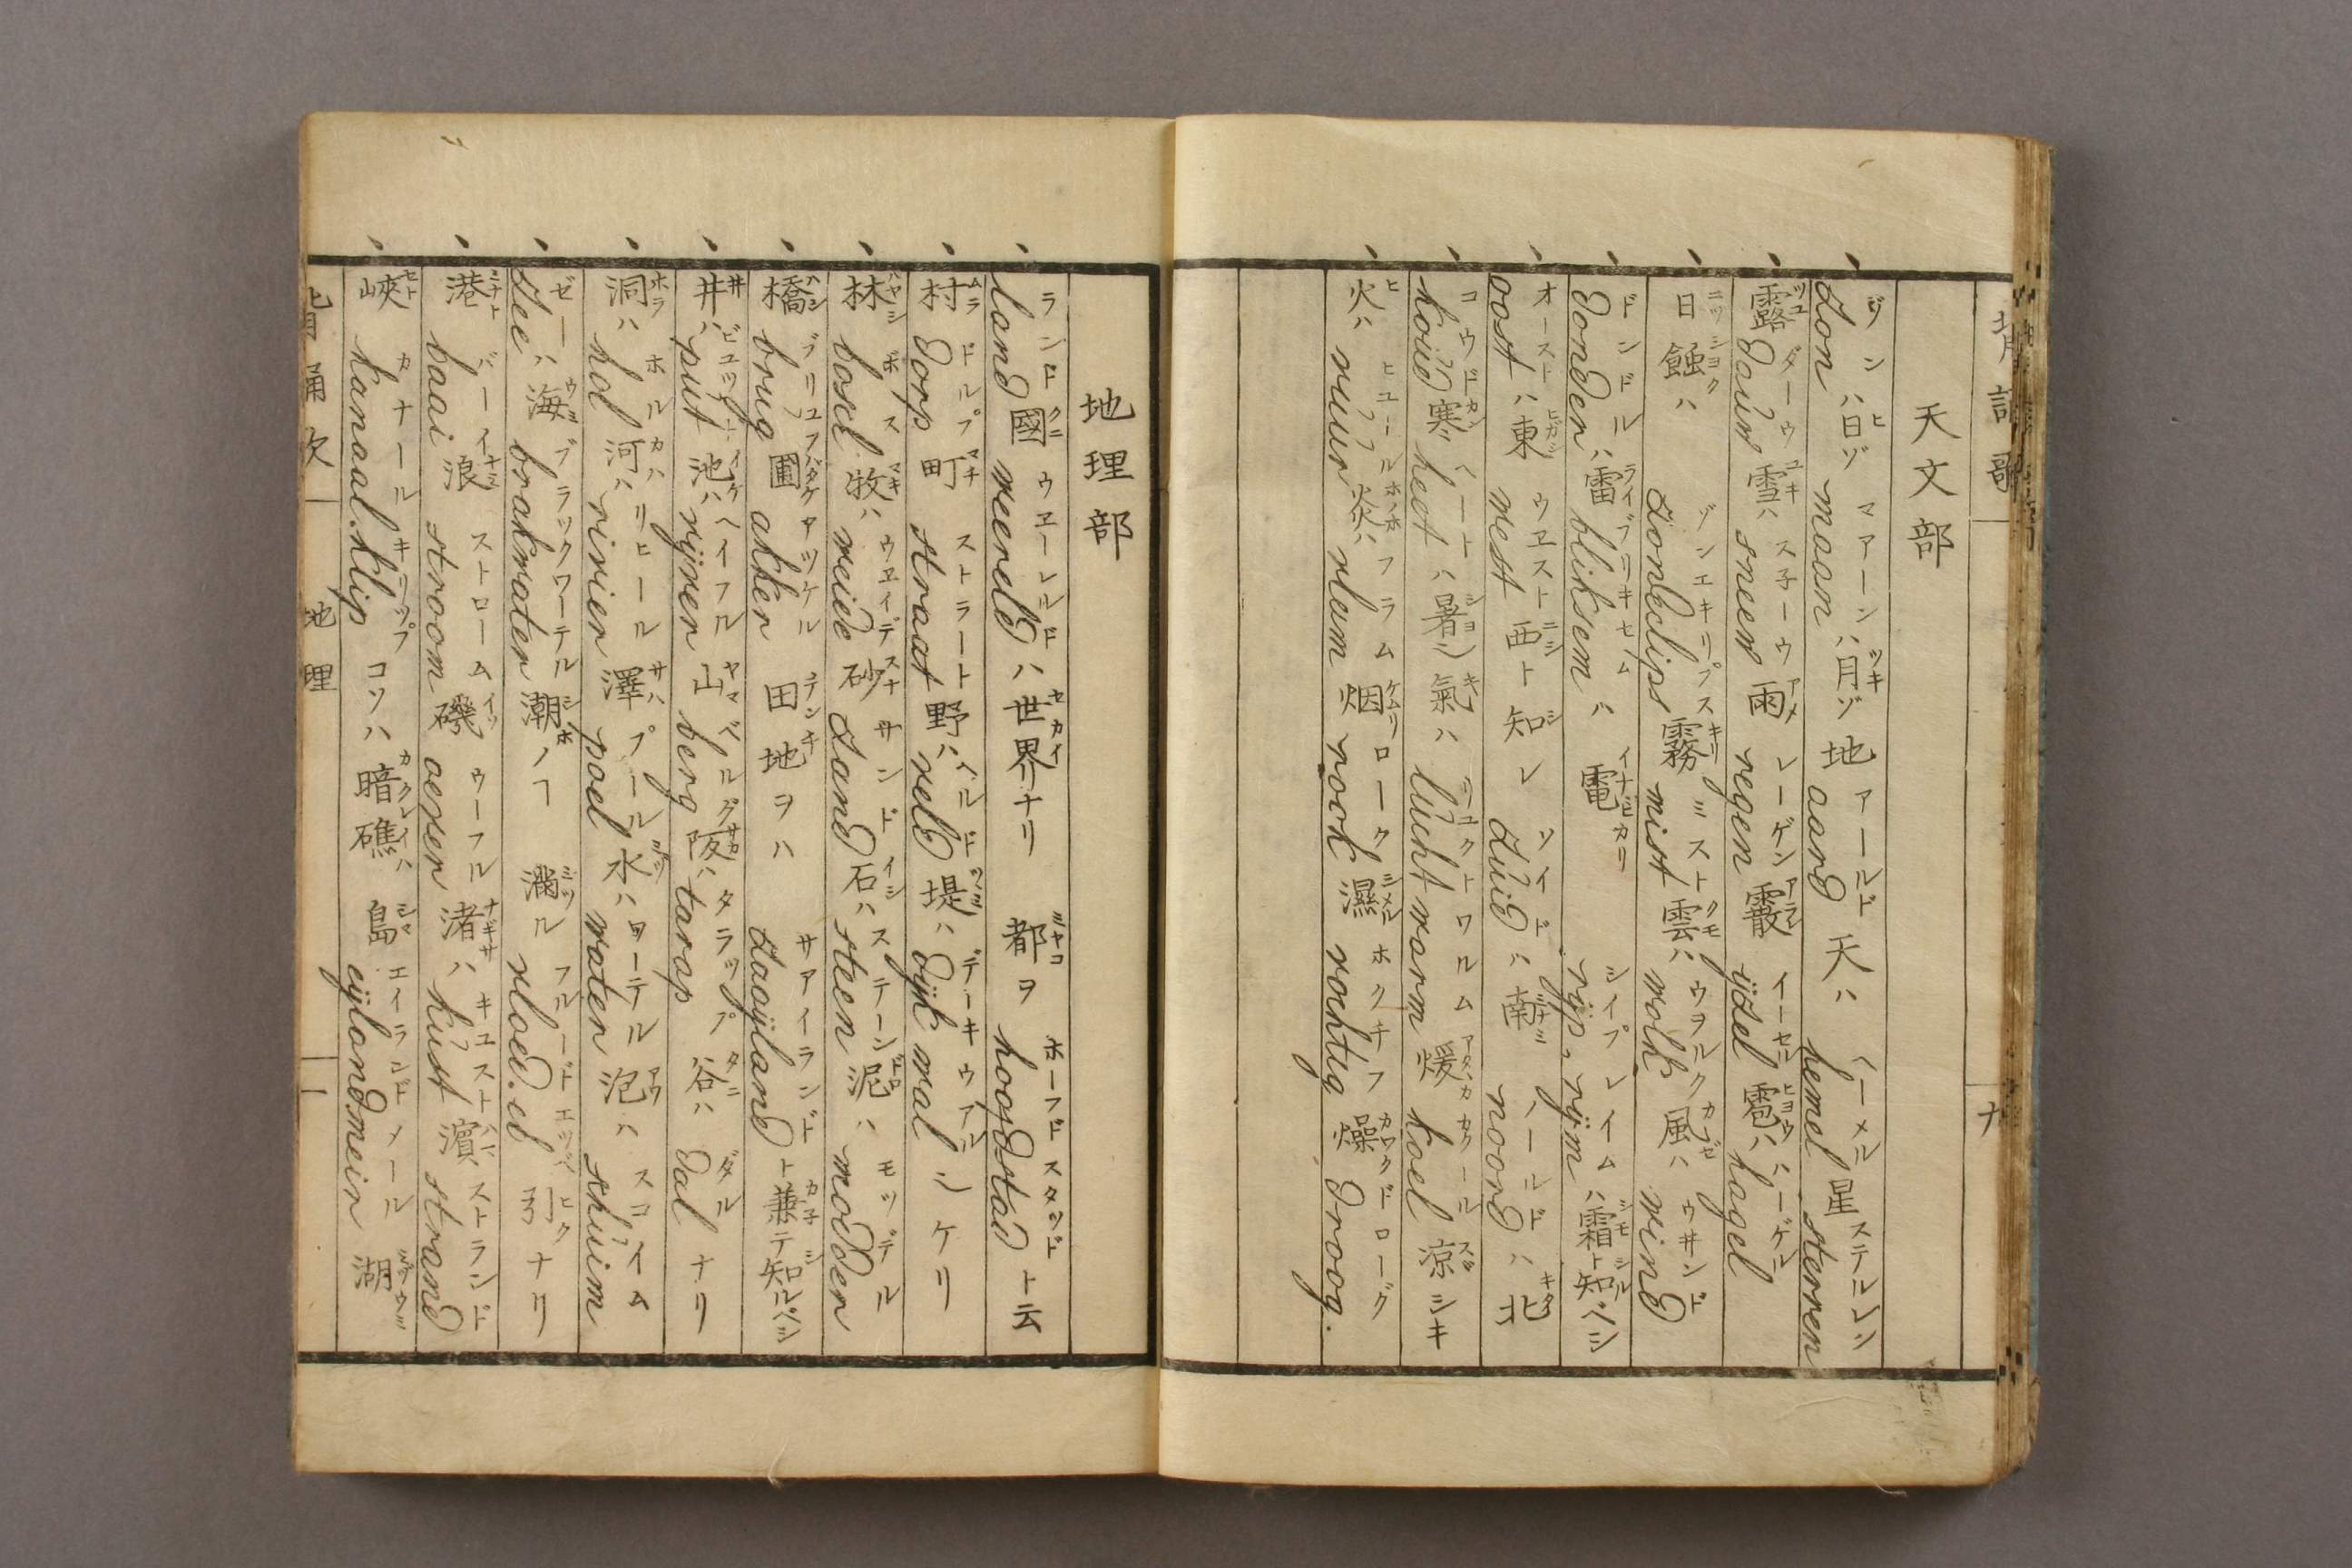 天文部
zon ハ日ゾ maaan ハ月ゾ 地 aard 天ハ hemel 星 sterren
露 dauw 雪ハ sneew 雨 regen 霰 ijzel 雹ハ hagel
日蝕ハ zoneclips 霧 mist 雲ハ wolk 風ハ wind
donder ハ雷 bliksem ハ電 rijp. rijm ハ霜ト知ベシ
oost ハ東 west 西ト知レ zuid ハ南 noord ハ北
koud 寒 heet ハ暑シ氣ハ lucht warm 煖 koel 涼シキ
火ハ vuur 炎ハ vlam 烟 rook 濕 vochtig 燥 droog.
地理部
land 國 weereld ハ世界ナリ 都ヲ hoofdstad ト云
村 dorp 町 straat 野ハ veld 堤ハ dijk wal シケリ
林 bosch 牧ハ weide 砂 zand 石ハ steen 泥ハ modder
橋 brug 圃 akker 田地ヲハ zaaijland ト兼テ知ルベシ
井ハ put 池ハ vijver 山 berg 阪ハ tarap 谷ハ dal ナリ
洞ハ hol 河ハ rivier 澤 poel 水ハ water 泡ハ schuim
zee ハ海 brakwater 潮ノヿ 滿ル vloed. eb 引ナリ
港 baai 浪 stroom 磯 oever 渚ハ kust 濱 strand
峽 kanaal. klip コソハ暗礁ハ 島 eijland meir 湖
地理